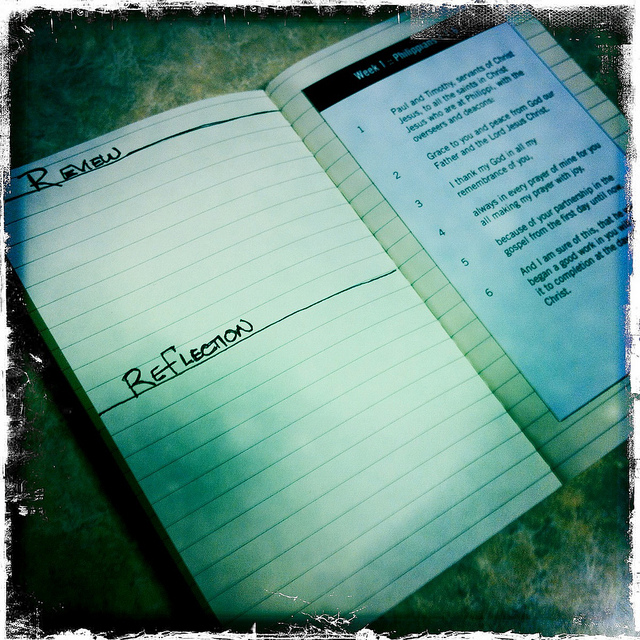 REVIEW
REFLECTION
Week 1 :: Philippians
1 Paul and Timothy, servants of Christ
Jesus, to all the saints in Christ
Jesus who are at Philippi, with the
overseers and deacons:
2 Grace to you and peace from God our
Father and the Lord Jesus Christ.
3 I thank my God in all my
remembrance of you,
4 always in every prayer of mine for you
all making my prayer with joy,
5 because of your partnership in the
gospel from the first day until now.
6 And I am sure of this, that he
began a good work in you
it to completion at the
Christ.